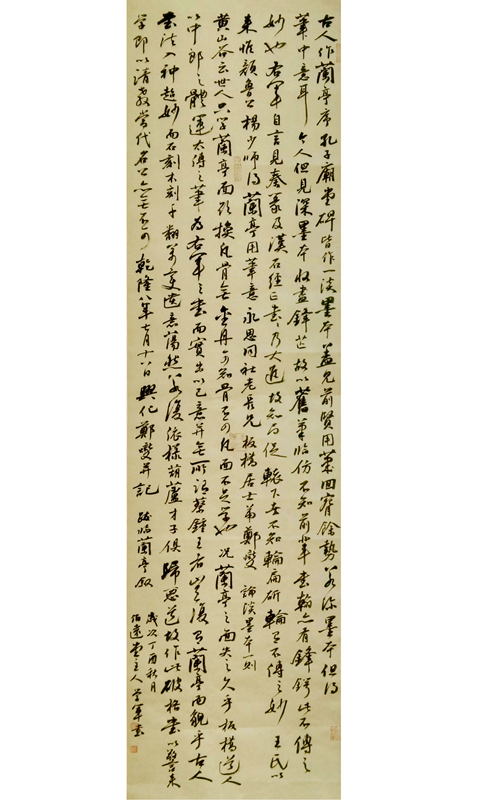 古人作蘭亭序孔子廟堂碑皆作一淡墨本蓋見前賢用筆回腕餘勢若深墨本但得
筆中意耳今人但見深墨本收盡鋒芒故以舊筆臨仿不知前輩書翰亦有鋒鍔此不傳之
妙也右軍自言見秦篆及漢石經正書乃大進故知局促轅下者不知輪扁斫輪有不傳之妙王氏以
來惟顏魯公楊少師得蘭亭用筆意永思同社老長兄板橋居士弟鄭燮論淡墨本一則
黃山谷云世人只學蘭亭面欲換凡骨無金丹可知骨不可凡面不足學也況蘭亭之面失之久乎板橋道人
以中郎之體運太傅之筆為右軍之書而實出以己意并無所謂蔡鍾王者豈復有蘭亭面貌乎古人
書法入神超妙而石刻木刻千翻萬變遺意蕩然若復依樣葫蘆才子俱歸惡道故作此破格書以警來
學即以請教當代名公亦無不可乾隆八年七月十八日興化鄭燮并記跋臨蘭亭敘
歲次丁酉秋月
伯遠堂主人學軍書